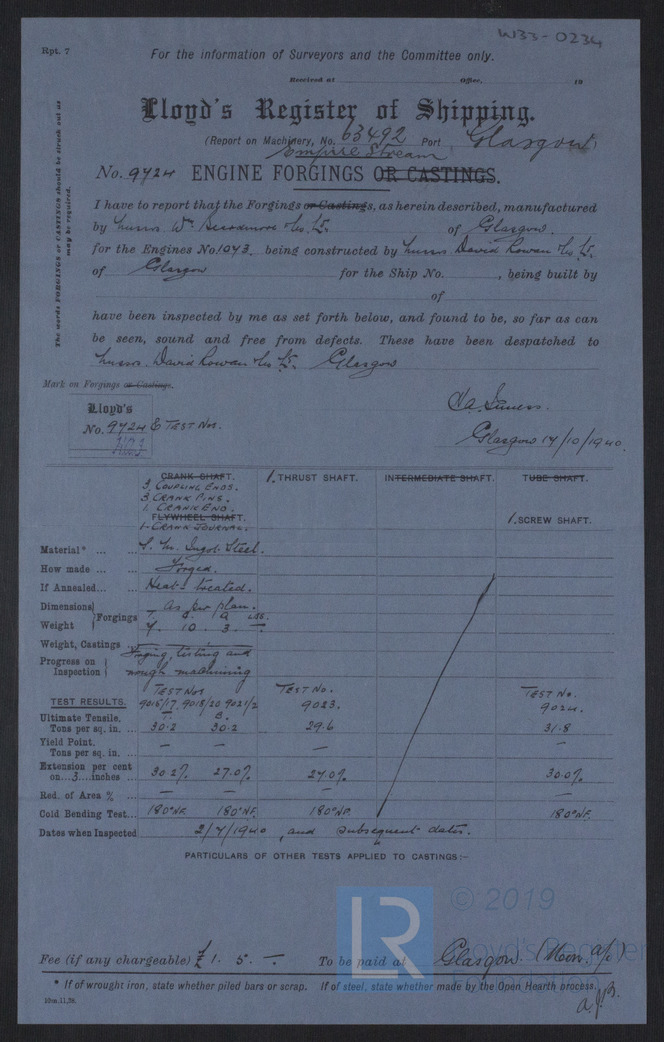 W33-0234
Rpt. 7
For the information of Surveyors and the Committee only.
Received at Office. 19
Lloyd's Register of Shipping.
(Report on Machinery, No. 63492 Port Glasgow)
Empire Stream
No. 9724 ENGINE FORGINGS OR CASTINGS.
The words FORGINGS or CASTINGS should be struck out as
may be required.
I have to report that the Forgings or Castings, as herein described, manufactured
by Messrs Wm Beardmore & Co. Ld. of Glasgow.
for the Engines No 1073. being constructed by Messrs David Rowan & Co. Ld.
of Glasgow for the Ship No. , being built by
of
have been inspected by me as set forth below, and found to be, so far as can
be seen, sound and free from defects. These have been despatched to
Messrs. David Rowan & Co. Ld. Glasgow
Mark on Forgings or Castings.
Lloyd's
No. 9724 E TEST Nos.
Glasgow 17/10/1940.
CRANK SHAFT.
3. COUPLING ENDS.
3. CRANK PINS.
1. CRANK END.
FLYWHEEL SHAFT.
1- CRANK JOURNAL.
1. THRUST SHAFT.
INTERMEDIATE SHAFT.
TUBE SHAFT.
1. SCREW SHAFT.
Material* ... ... S. M. Ingot Steel.
How made ... ... Forged.
If Annealed... ... Heat-treated.
Dimensions as per plan.
Forgings
T. C. Q LBS.
Weight 7. 10. 3. —
Weight, Castings ...
Progress on Inspection Forging, testing and
rough machining
TEST RESULTS.
TEST Nos TEST No. TEST No.
9015/17. 9018/20 9021/2 9023. 9024.
T. B.
Ultimate Tensile,
Tons per sq. in. ... 30.2 30.2 29.6 31.8
Yield Point,
Tons per sq. in. ... — — — —
Extension per cent
on...3....inches ... 30.2% 27.0% 27.0% 30.0%
Red. of Area % ... — — — —
Cold Bending Test... 180°NF. 180°NF. 180°NF 180°NF.
Dates when Inspected 2/7/1940, and subsequent dates.
PARTICULARS OF OTHER TESTS APPLIED TO CASTINGS:—
© 2019
LR
Lloyd's Register
Fee (if any chargeable) £ 1. 5. —. To be paid at Glasgow. (Mon. a/c)
* If of wrought iron, state whether piled bars or scrap. If of steel, state whether made by the Open Hearth process.
10m.11,38.